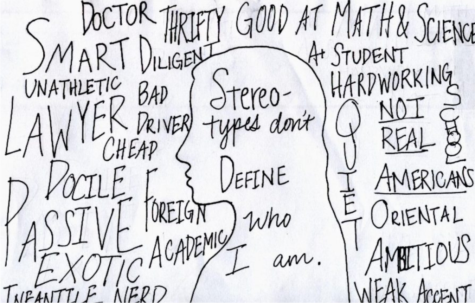 DOCTOR THRIFTY GOOD AT MATH & SCIENCE
SMART DILIGENT
A+ STUDENT
UNATHLETIC
HARDWORKING
LAWYER
BAD
DRIVER
CHEAP
Stereo-
types don't
DEFINE
who
I am.
QUIET
NOT
REAL
AMERICANS
DOCILE
PASSIVE
FOREIGN
ACADEMIC
EXOTIC
ORIENTAL
AMBITIOUS
INFANTILE NERD
WEAK ACCENT